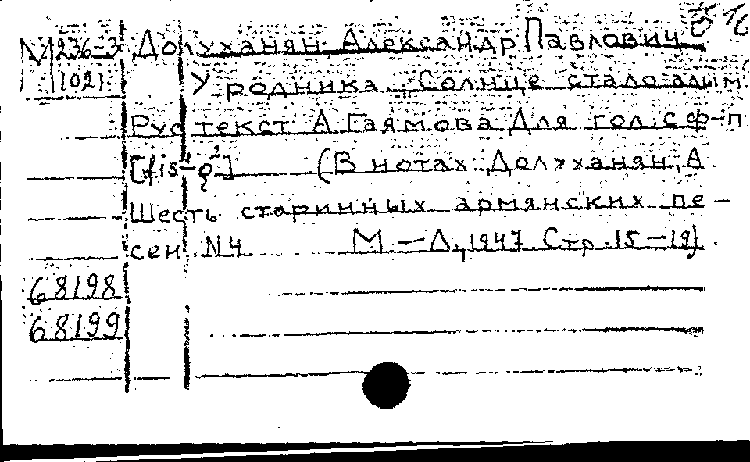 М 236-3 Долуханян, Александр Павлович
1021 У родника. Солнце стало алым
Рус текст А. Гаямова Для гол. с ф-п
(В нотах: Долуханян, А
Шесть старинных армянских пе-
сен. N4 М.-Л., 1947. Стр. 15-19).
68198
68199